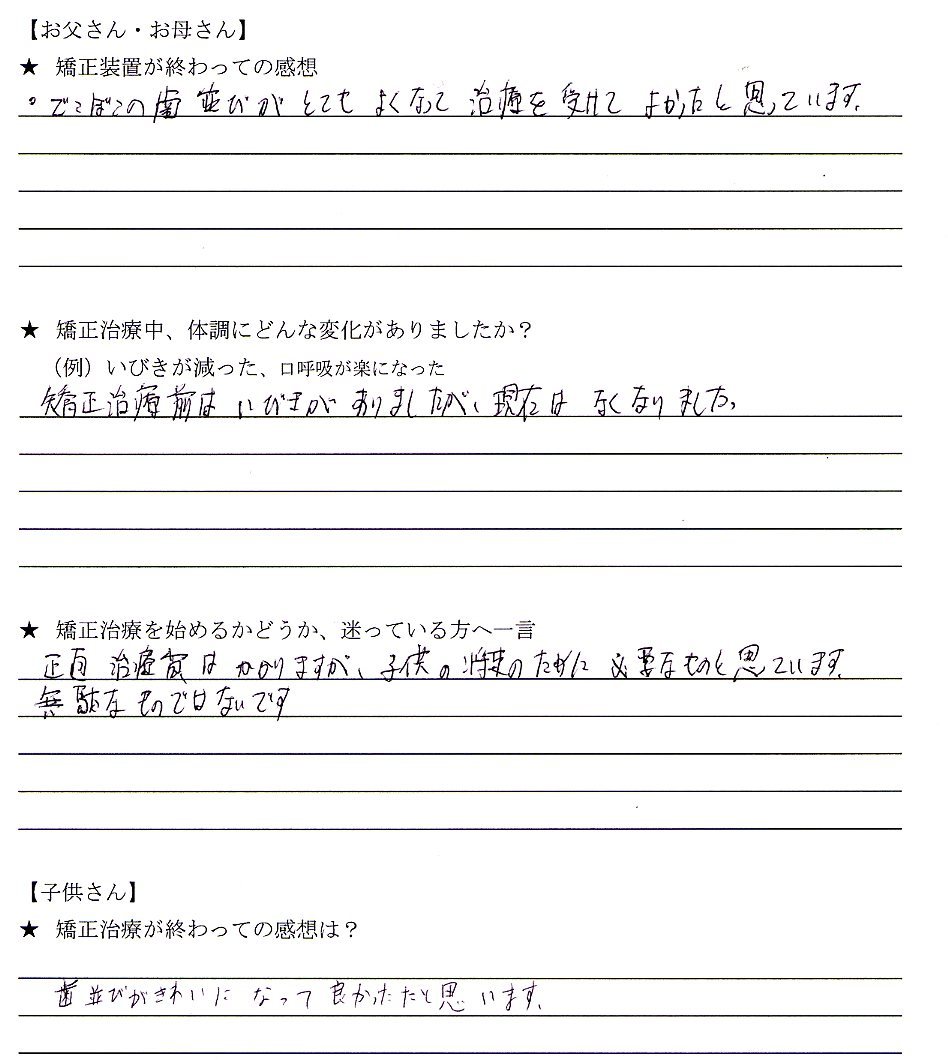 【お父さん・お母さん】
★ 矯正装置が終わっての感想
。でこぼこの歯並びがとてもよくなって治療を受けてよかったと思っています。
★ 矯正治療中、体調にどんな変化がありましたか？
（例）いびきが減った、口呼吸が楽になった
矯正治療前はいびきがありましたが、現在はなくなりました。
★ 矯正治療を始めるかどうか、迷っている方へ一言
正直治療費はかかりますが、子供の将来のために必要なものと思ています。
無駄なものではないです
【子供さん】
★ 矯正治療が終わっての感想は？
歯並びがきれいになって良かったと思います。